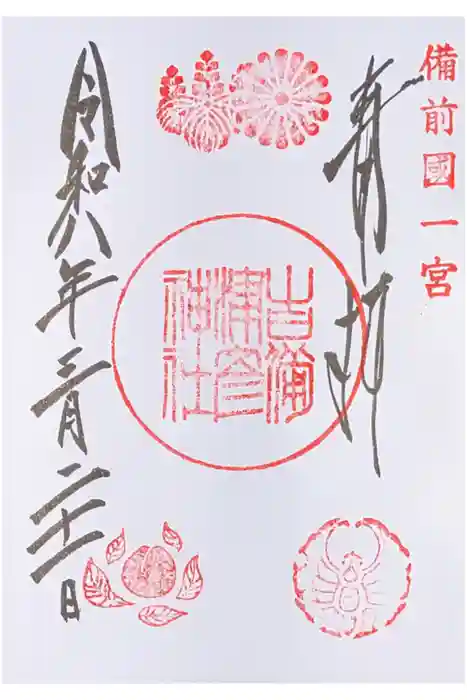 備前國一宮
奉拝
吉備
津彦
神社
令和八年三月二十一日